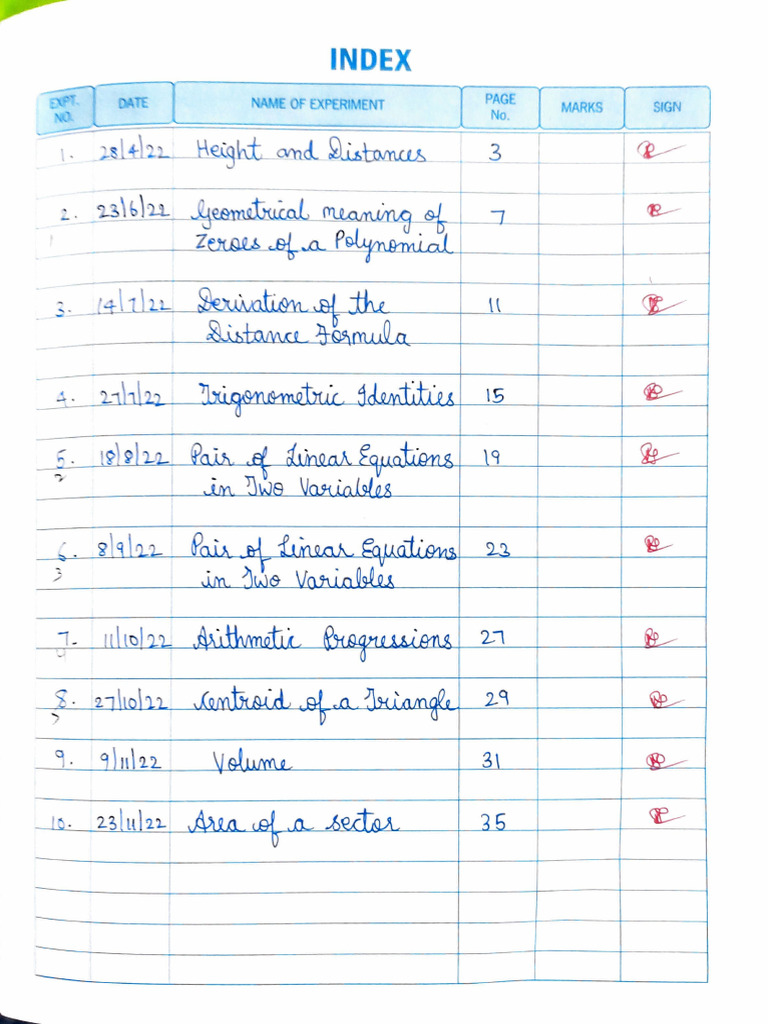 INDEX
EXPT. NO. DATE NAME OF EXPERIMENT PAGE No. MARKS SIGN
1. 28/4/22 Height and Distances 3
2. 23/6/22 Geometrical meaning of 7
1 Zeroes of a Polynomial
3. 14/7/22 Derivation of the 11
Distance Formula
4. 27/7/22 Trigonometric Identities 15
5. 18/8/22 Pair of Linear Equations 19
2 in Two Variables
6. 8/9/22 Pair of Linear Equations 23
3 in Two Variables
7. 11/10/22 Arithmetic Progressions 27
4
8. 27/10/22 Centroid of a Triangle 29
9. 9/11/22 Volume 31
10. 23/11/22 Area of a sector 35